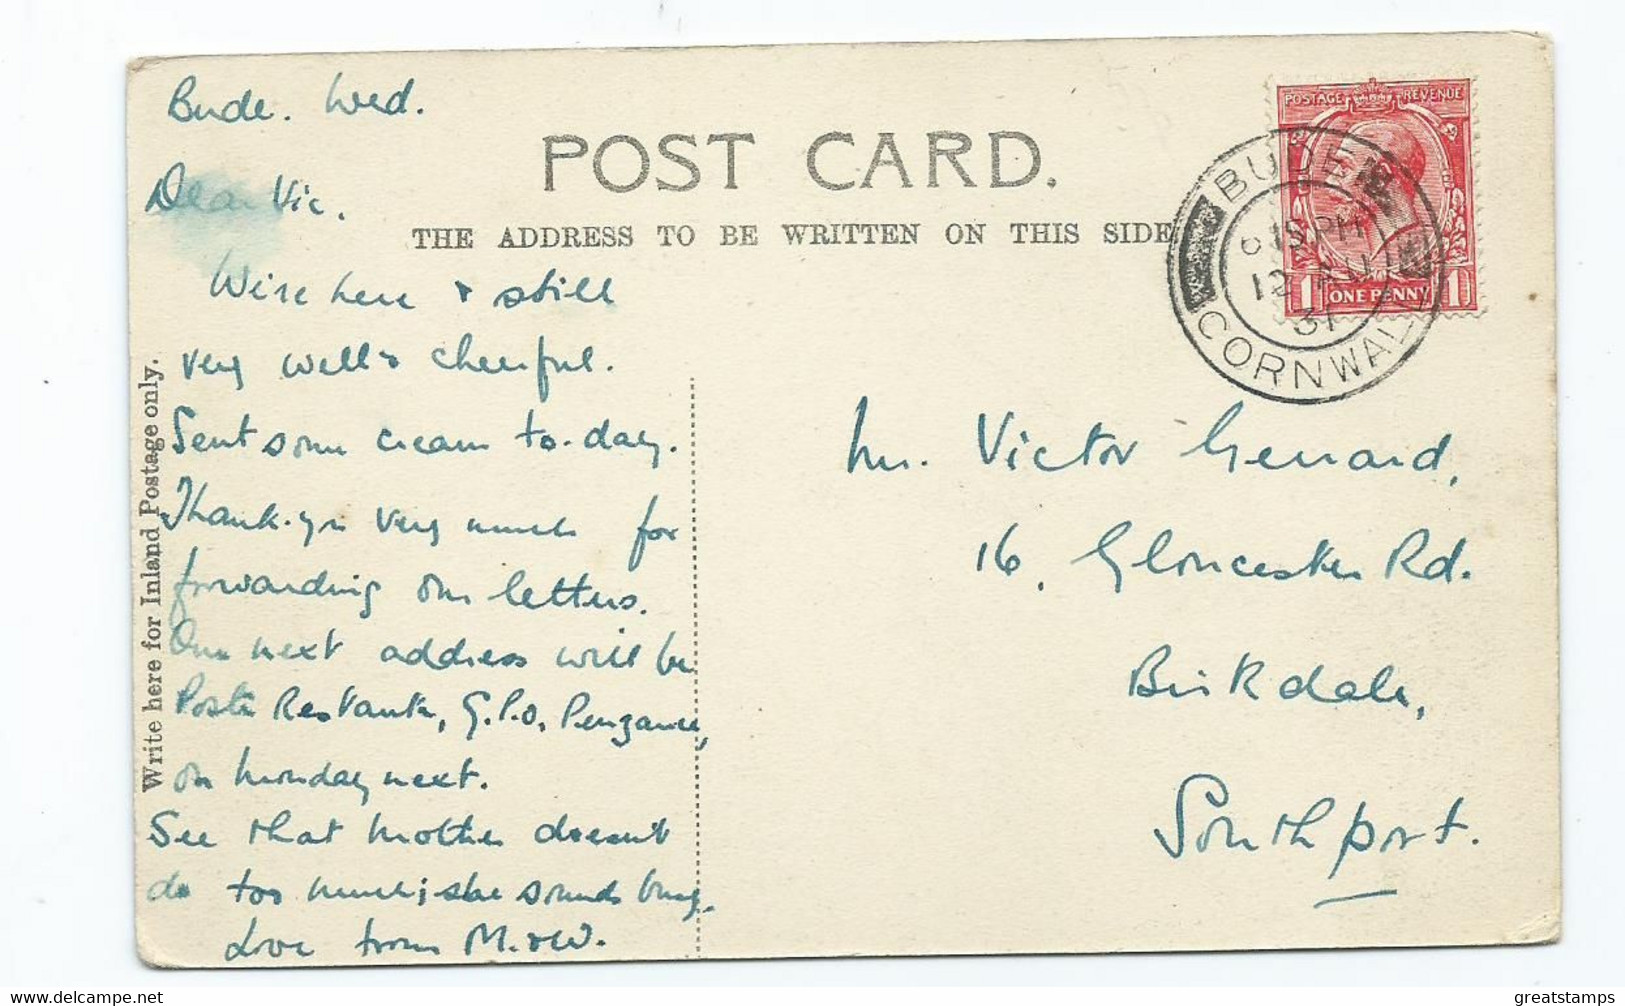 Bude. Wed.
Dear Vic.
We're here & still
very well & cheerful.
Sent some cream to-day.
Thank-you very much for
forwarding our letters.
Our next address will be
Poste Restante, G.P.O. Penzance,
on Monday next.
See that Mother doesn't
do too much; she sounds busy.
Love from M. & W.
Write here for Inland Postage only.
POST CARD.
THE ADDRESS TO BE WRITTEN ON THIS SIDE
POSTAGE REVENUE
1 ONE PENNY 1
BUDE
6 15 PM
12 AU
31
CORNWALL
Mr. Victor Gerrard,
16, Gloucester Rd.
Birkdale,
Southport.
greatstamps
www.delcampe.net